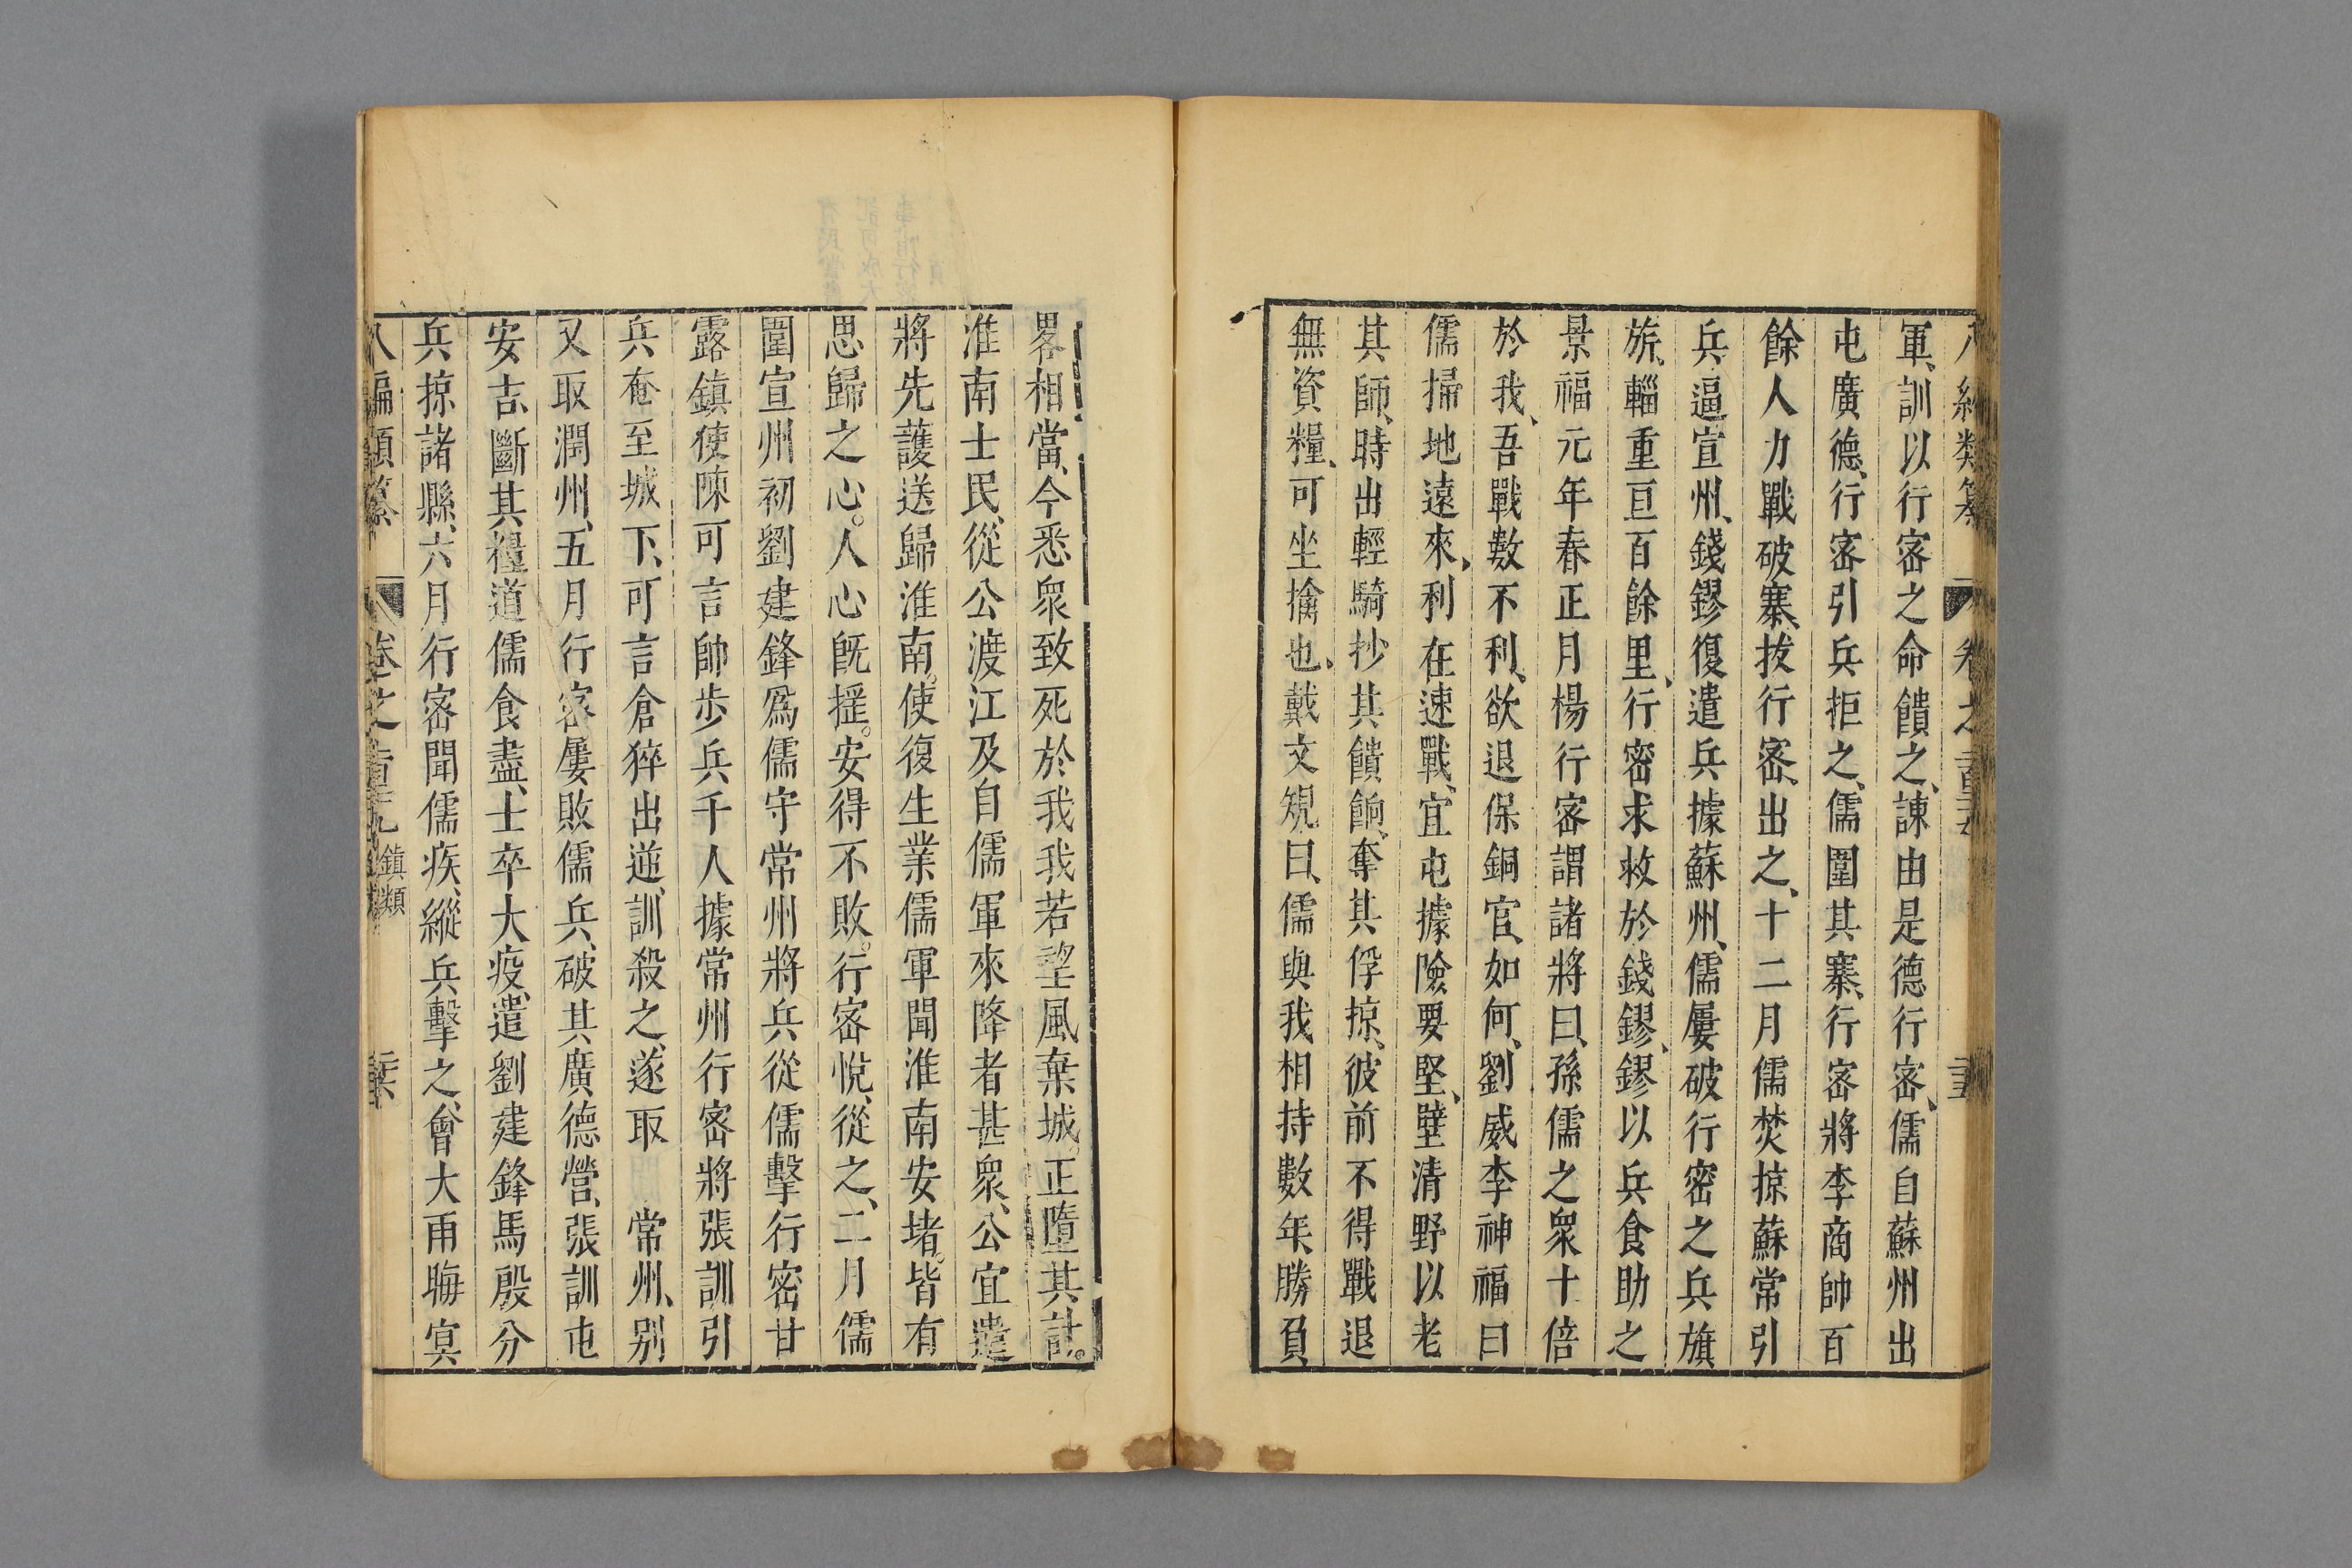 軍、訓以行密之命饋之、諌由是德行密、儒自蘇州出
屯廣德、行密引兵拒之、儒圍其寨、行密將李商帥百
餘人力戰破寨、拔行密、出之、十二月儒焚掠蘇常引
兵逼宣州、錢鏐復遣兵據蘇州、儒屢破行密之兵旗
旂、輜重亘百餘里、行密求救於錢鏐、鏐以兵食助之
景福元年春正月楊行密謂諸將曰、孫儒之衆十倍
於我、吾戰數不利、欲退保銅官、如何、劉威李神福曰
儒掃地遠來、利在速戰、宜屯據險要、堅壁清野以老
其師、時出輕騎抄其饋餉、奪其俘掠、彼前不得戰退
無資糧、可坐擒也、戴文規曰、儒與我相持數年、勝負
畧相當、今悉衆致死於我我若望風棄城。正墮其計。
淮南士民、從公渡江及自儒軍來降者甚衆、公宜遣
將先護送歸淮南。使復生業儒軍聞淮南安堵。皆有
思歸之心。人心旣搖。安得不敗。行密悅、從之、二月儒
圍宣州初劉建鋒爲儒守常州將兵從儒擊行密甘
露鎮使陳可言帥步兵千人據常州行密將張訓引
兵奄至城下、可言倉猝出逆、訓殺之、遂取常州、别
又取潤州、五月行密屢敗儒兵、破其廣德營、張訓屯
安吉、斷其糧道儒食盡、士卒大疫、遣劉建鋒馬殷分
兵掠諸縣、六月行密聞儒疾、縱兵擊之、會大雨晦冥
八編類纂 卷之 鎮類